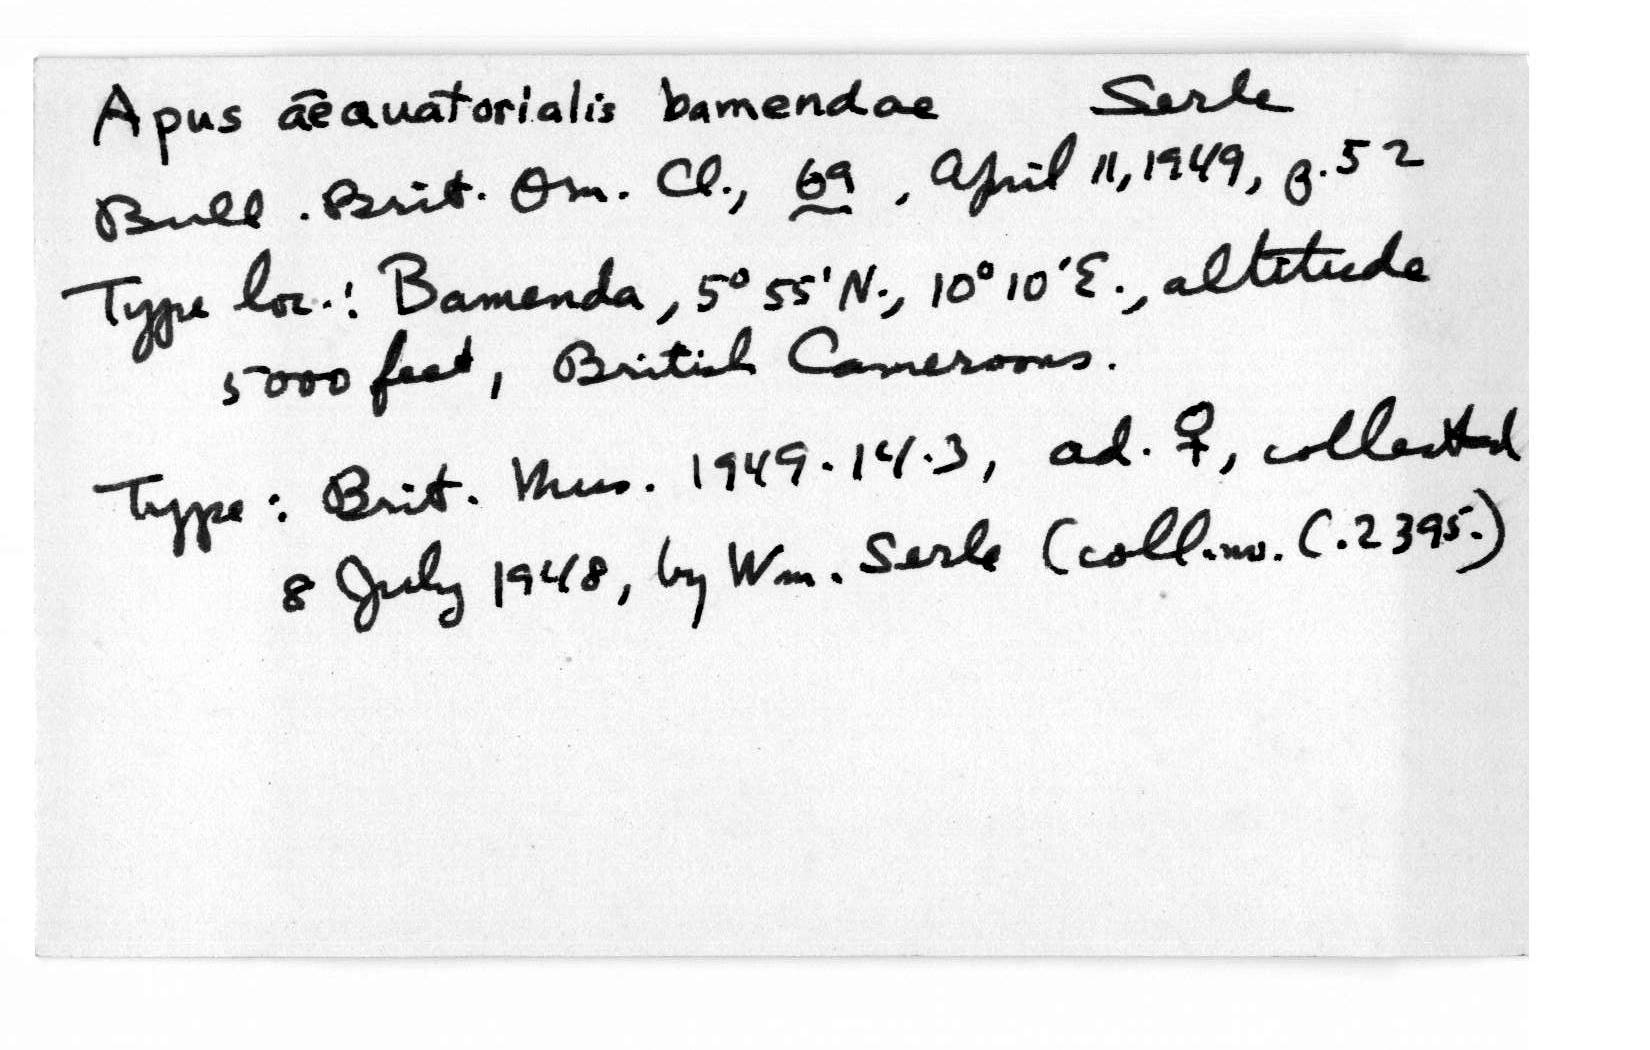 Apus aequatorialis bamendae Serle
Bull. Brit. Orn. Cl., 69, April 11, 1949, p. 52
Type loc.: Bamenda, 5° 55' N., 10° 10' E., altitude
5000 feet, British Cameroons.
Type: Brit. Mus. 1949.14.3, ad. ♀, collected
8 July 1948, by Wm. Serle (coll. no. C.2395.)